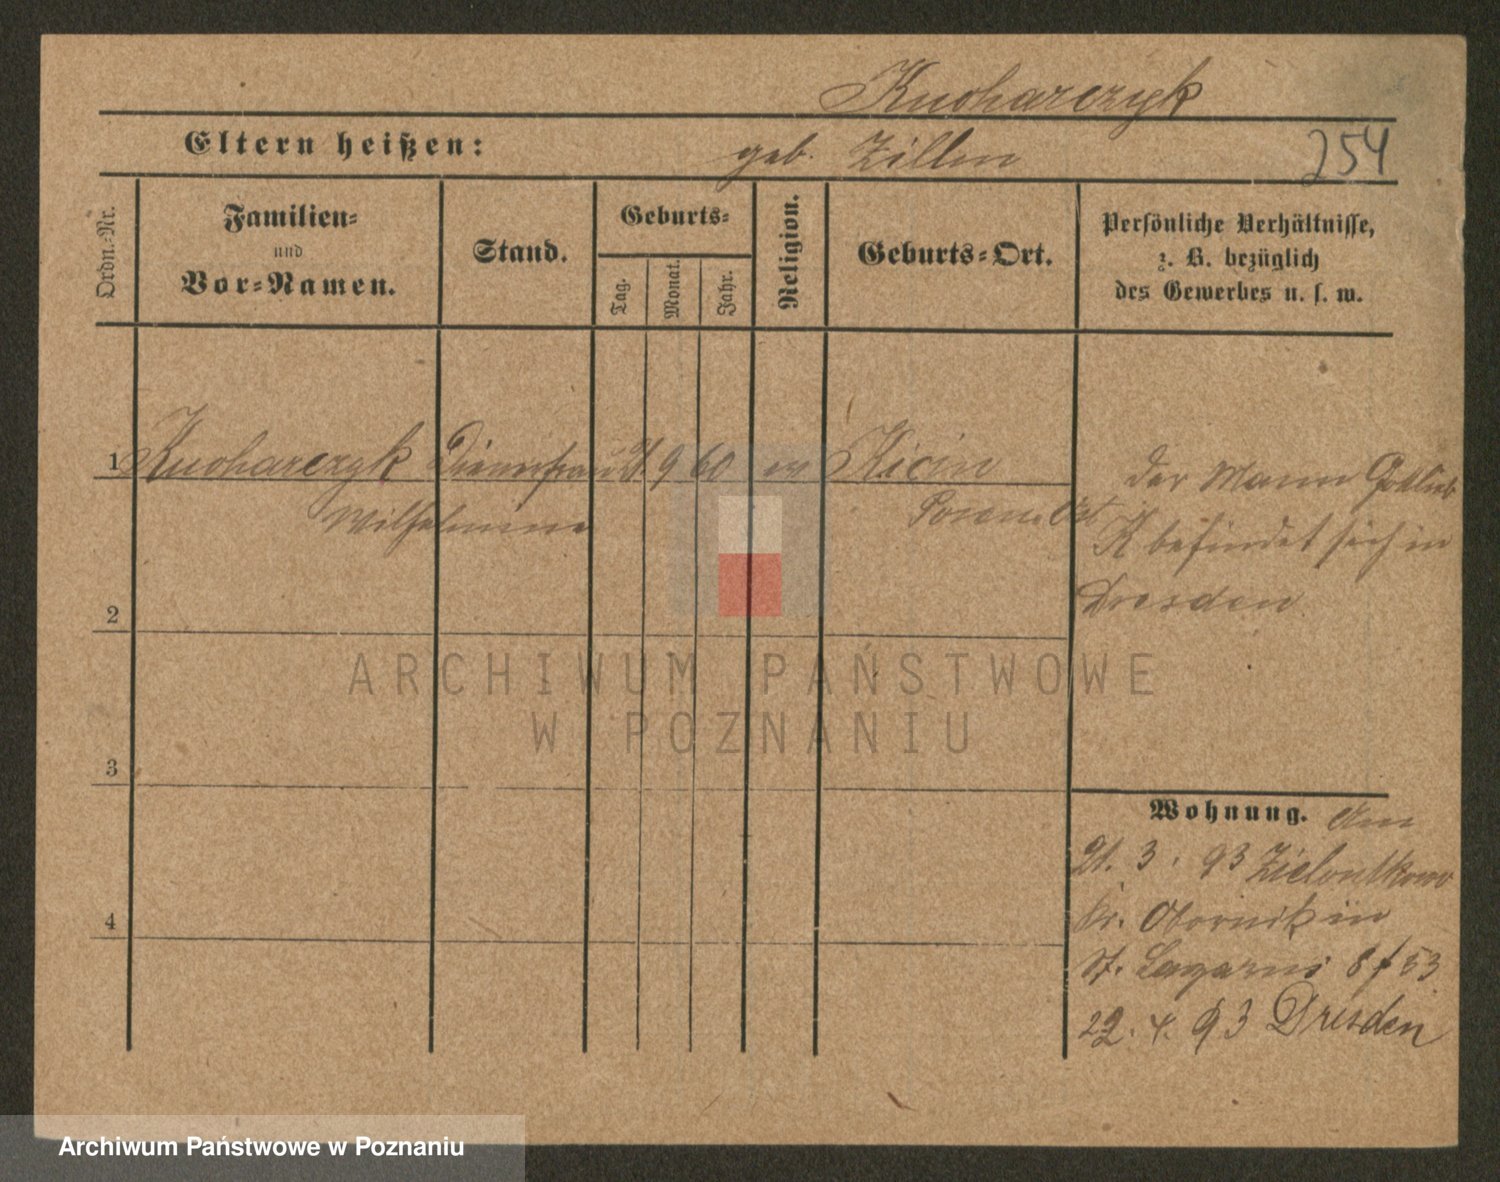 Kucharczyk
Eltern heißen: geb. Zillm
254
Ordn.-Nr.
Familien-
und
Vor-Namen.
Stand.
Geburts-
Tag.
Monat.
Jahr.
Religion.
Geburts-Ort.
Persönliche Verhältnisse,
z. B. bezüglich
des Gewerbes u. s. w.
1 Kucharczyk Dienerfrau 21 9 60 ev Kicin
Wilhelmine Posen Ost
der Mann Gottlieb
K befindet sich in
Dresden
2
ARCHIWUM PAŃSTWOWE
W POZNANIU
3
4
Wohnung. Am
21. 3. 93 Zielontkowo
Kr. Obornik in
St. Lazarus 8 f 53
22. 4. 93 Dresden
Archiwum Państwowe w Poznaniu